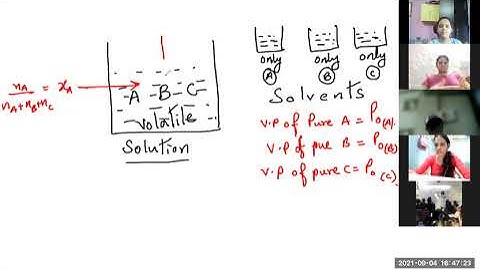 nA / nA+nB+nC = xA
A B C
volatile
Solution
only only only
A B C
Solvents
V.P of Pure A = Po(A).
V.P of pue B = Po(B)
V.P of pure C = Po(C).
2021-09-04 16:47:23